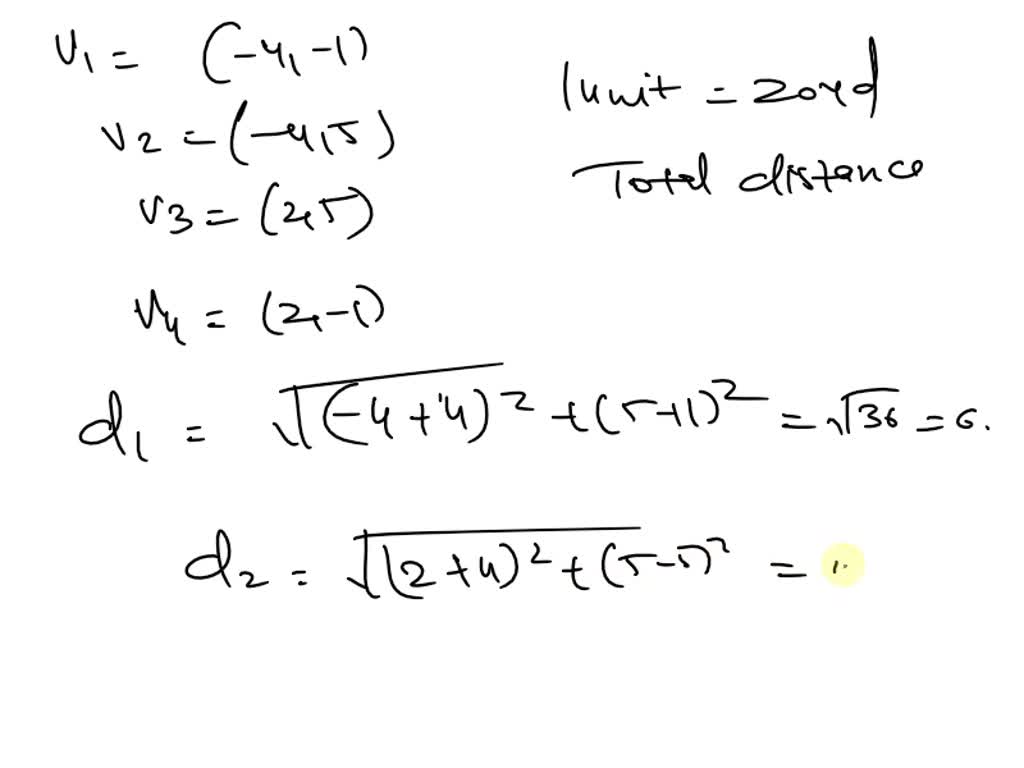 V1 = (-4,-1)
V2 = (-4,5)
V3 = (2,5)
V4 = (2,-1)
1 unit = 20yd
Total distance
d1 = √(-4+4)² + (5+1)² = √36 = 6.
d2 = √(2+4)² + (5-5)² =